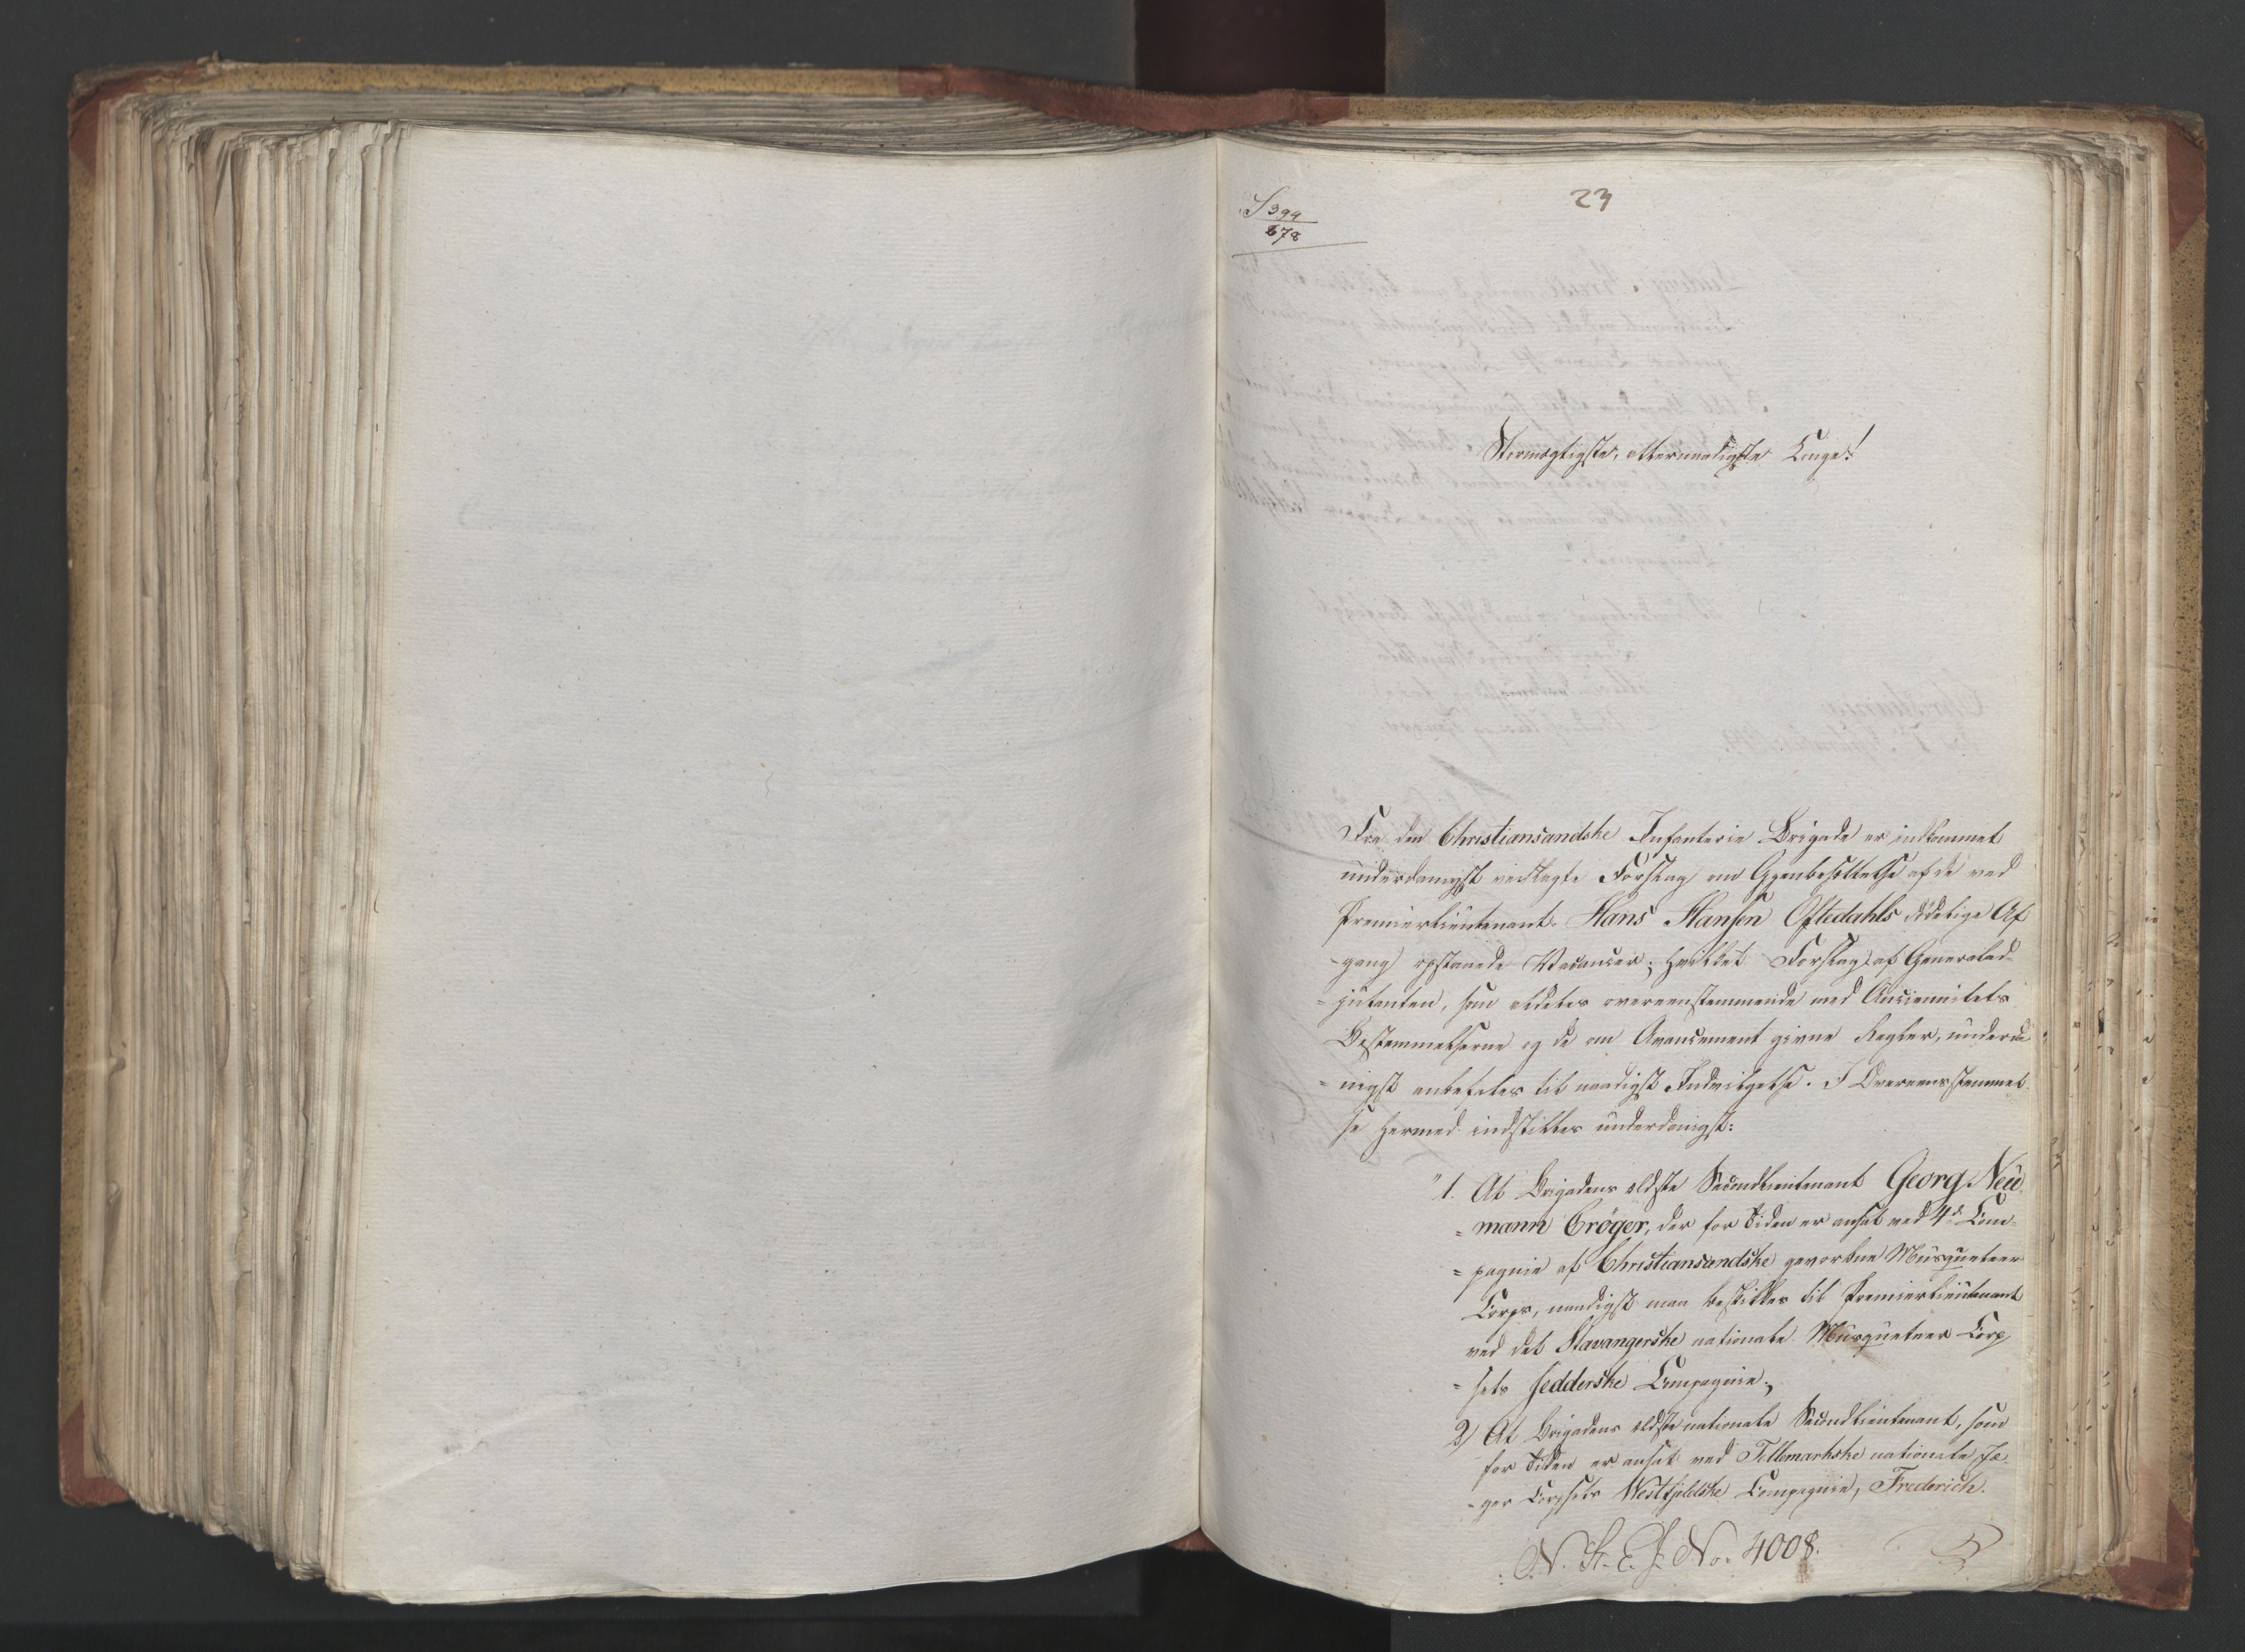 23
S 399
878
Stormægtigste, allernaadigste Konge!
Fra den Christiansandske Infanterie Brigade er indkommet
underdanigst vedlagte Forslag om Gjenbesættelse af de ved
Premierlieutenant Hans Hansen Oftedahls dödelige Af
-gang opstaaede Vacancer; hvilket Forslag af Generalad-
=jutanten, som aldeles overeenstemmende med Anciennitets
Bestemmelserne og de om Avancement givne Regler, underda
=nigst anbefales til naadigst Indvilgelse. I Overeensstemmel
se hermed indstilles underdanigst:
"1. At Brigadens ældste Secondlieutenant Georg Neu
=mann Cröger, der for Tiden er ansat ved 4de Com-
=pagnie af Christiansandske gevorbne Musqueteer
Corps, naadigst maa beskikkes til Premierlieutenant
ved det Stavangerske nationale Musqueteer Corp
=sets Jedderske Compagnie;
2) At Brigadens ældste nationale Secondlieutenant, som
for Tiden er ansat ved Tellemarkske nationale Jæ
-ger Corpsets Westfjeldske Compagnie, Frederich
N. St. E. J. No. 4008.